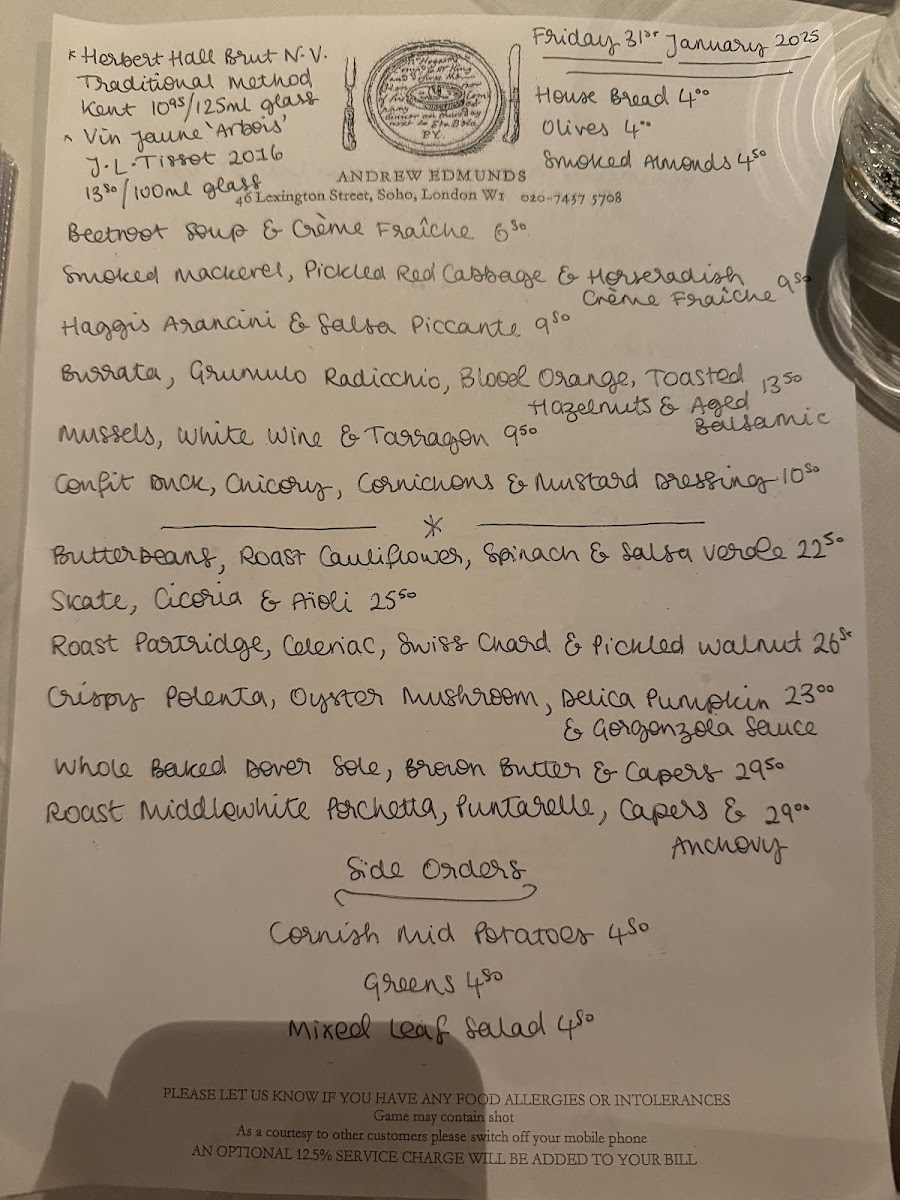 * Herbert Hall Brut N.V.
Traditional Method
Kent 10⁹⁵/125ml glass
* Vin Jaune 'Arbois'
J.L. Tissot 2016
13⁵⁰/100ml glass
Friday 31ˢᵗ January 2025
House Bread 4⁰⁰
Olives 4⁰⁰
Smoked Almonds 4⁵⁰
ANDREW EDMUNDS
46 Lexington Street, Soho, London W1 020-7437 5708
Beetroot Soup & Crème Fraîche 6⁵⁰
Smoked Mackerel, Pickled Red Cabbage & Horseradish
Crème Fraîche 9⁵⁰
Haggis Arancini & Salsa Piccante 9⁵⁰
Burrata, Grumulo Radicchio, Blood Orange, Toasted 13⁵⁰
Hazelnuts & Aged
Balsamic
Mussels, White Wine & Tarragon 9⁵⁰
Confit Duck, Chicory, Cornichons & Mustard Dressing 10⁵⁰
*
Butterbeans, Roast Cauliflower, Spinach & Salsa Verde 22⁵⁰
Skate, Cicoria & Aïoli 25⁵⁰
Roast Partridge, Celeriac, Swiss Chard & Pickled Walnut 26⁵⁰
Crispy Polenta, Oyster Mushroom, Delica Pumpkin 23⁰⁰
& Gorgonzola Sauce
Whole Baked Dover Sole, Brown Butter & Capers 29⁵⁰
Roast Middlewhite Porchetta, Puntarelle, Capers & 29⁰⁰
Anchovy
Side Orders
Cornish Mid Potatoes 4⁵⁰
Greens 4⁵⁰
Mixed Leaf Salad 4⁵⁰
PLEASE LET US KNOW IF YOU HAVE ANY FOOD ALLERGIES OR INTOLERANCES
Game may contain shot
As a courtesy to other customers please switch off your mobile phone
AN OPTIONAL 12.5% SERVICE CHARGE WILL BE ADDED TO YOUR BILL